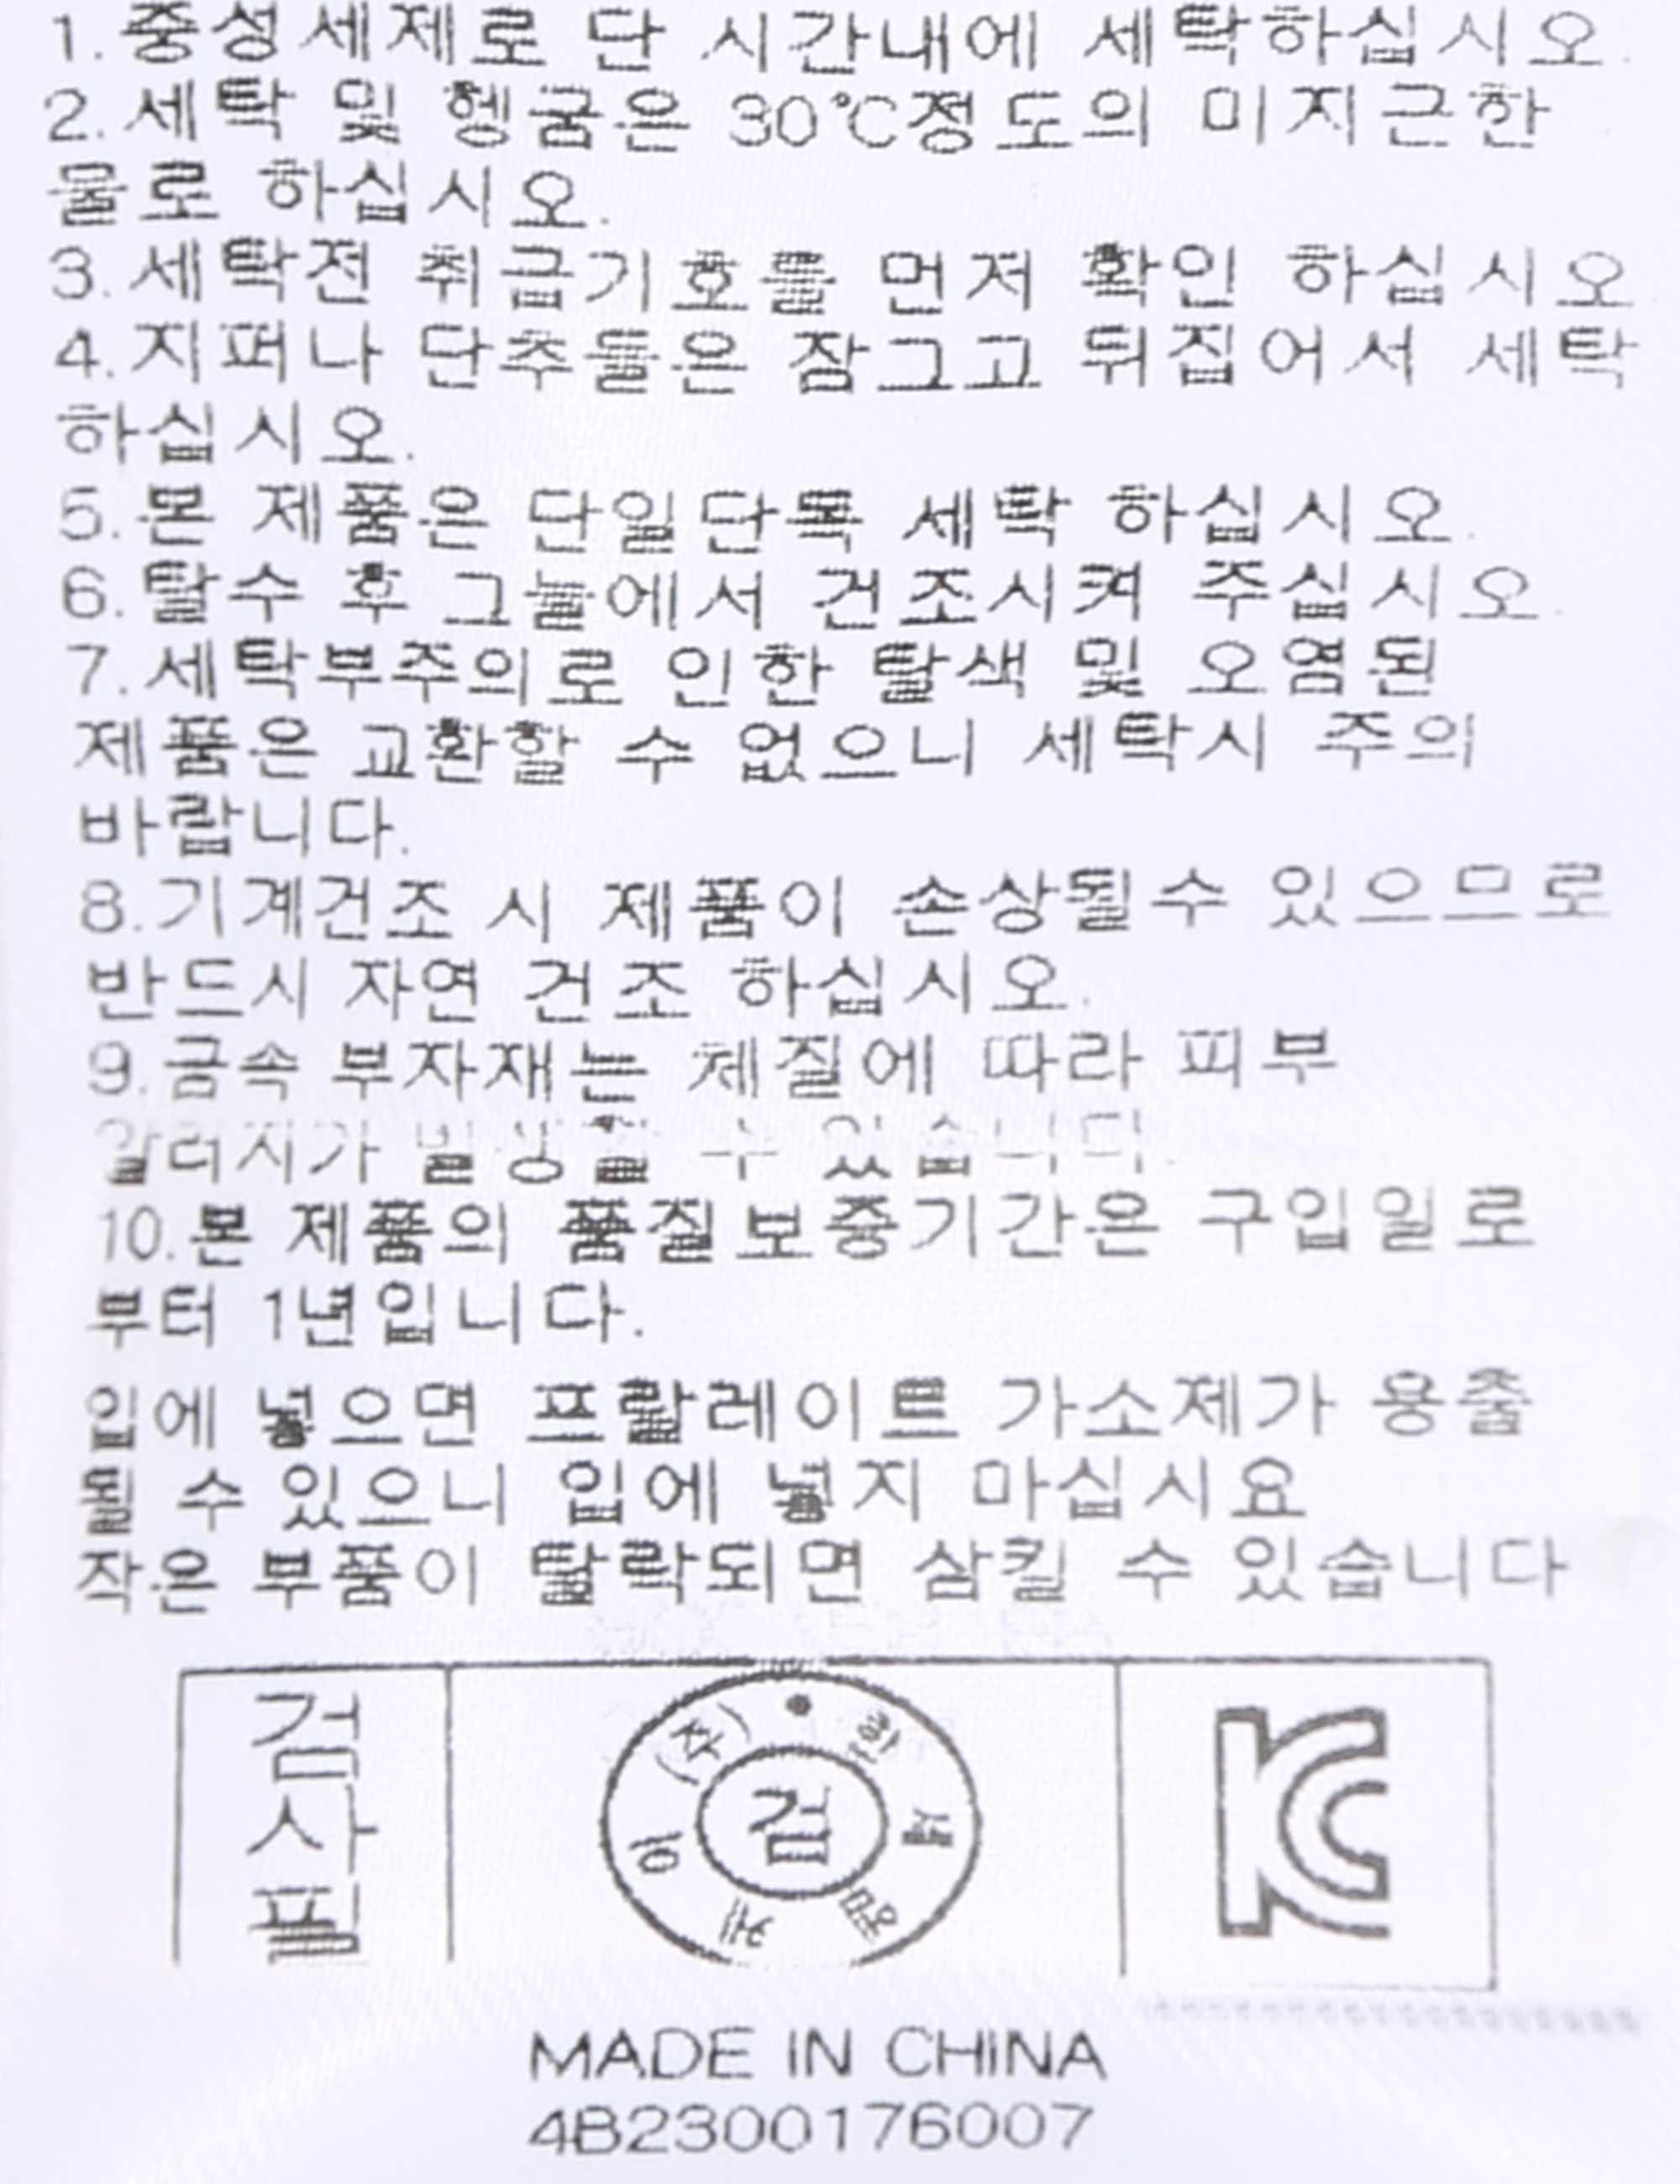 1. 중성세제로 단 시간내에 세탁하십시오.
2. 세탁 및 헹굼은 30℃정도의 미지근한
물로 하십시오.
3. 세탁전 취급기호를 먼저 확인 하십시오
4. 지퍼나 단추들은 잠그고 뒤집어서 세탁
하십시오.
5. 본 제품은 단일단독 세탁 하십시오.
6. 탈수 후 그늘에서 건조시켜 주십시오.
7. 세탁부주의로 인한 탈색 및 오염된
제품은 교환할 수 없으니 세탁시 주의
바랍니다.
8. 기계건조 시 제품이 손상될수 있으므로
반드시 자연 건조 하십시오.
9. 금속 부자재는 체질에 따라 피부
알러지가 발생할 수 있습니다.
10. 본 제품의 품질보증기간은 구입일로
부터 1년입니다.
입에 넣으면 프탈레이트 가소제가 용출
될 수 있으니 입에 넣지 마십시요
작은 부품이 탈락되면 삼킬 수 있습니다
검사필
(주)한세엠케이
검
KC
MADE IN CHINA
4B2300176007